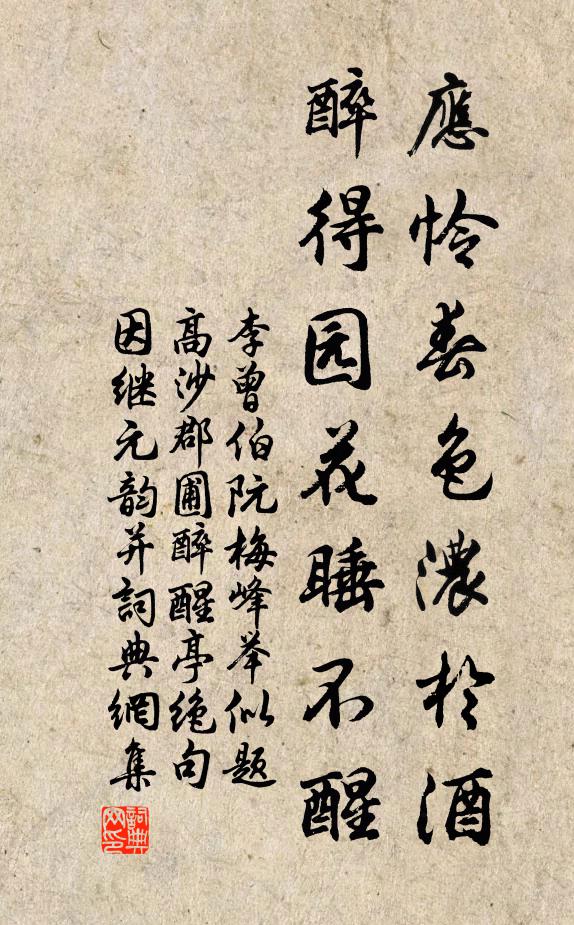 應怜春色濃於酒
醉得园花睡不醒
李曾伯阮梅峰举似题
高沙郡圃醉醒亭绝句
因继元韵并詞典網集
詞典
网印